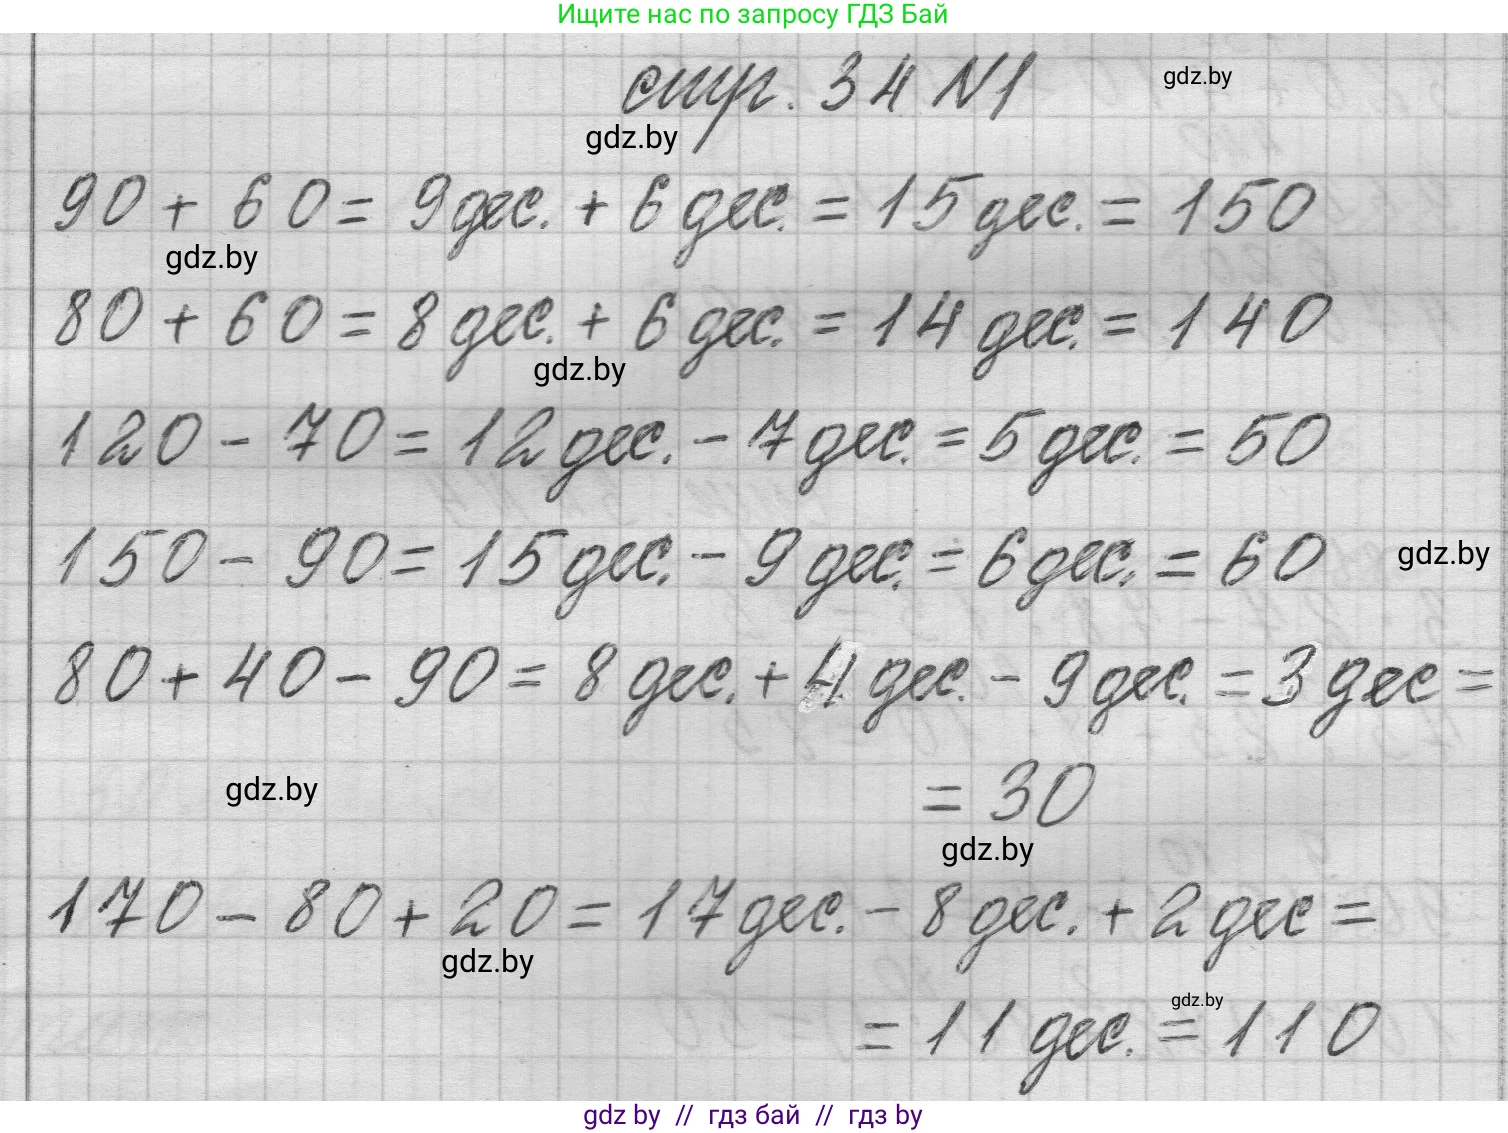 Ищите нас по запросу ГДЗ Бай
стр. 34 №1
gdz.by
gdz.by
90 + 60 = 9 дес. + 6 дес. = 15 дес. = 150
gdz.by
80 + 60 = 8 дес. + 6 дес. = 14 дес. = 140
gdz.by
120 - 70 = 12 дес. - 7 дес. = 5 дес. = 50
150 - 90 = 15 дес. - 9 дес. = 6 дес. = 60
gdz.by
80 + 40 - 90 = 8 дес. + 4 дес. - 9 дес. = 3 дес =
gdz.by
= 30
gdz.by
170 - 80 + 20 = 17 дес. - 8 дес. + 2 дес =
gdz.by
gdz.by
= 11 дес. = 110
gdz by // гдз бай // гдз by